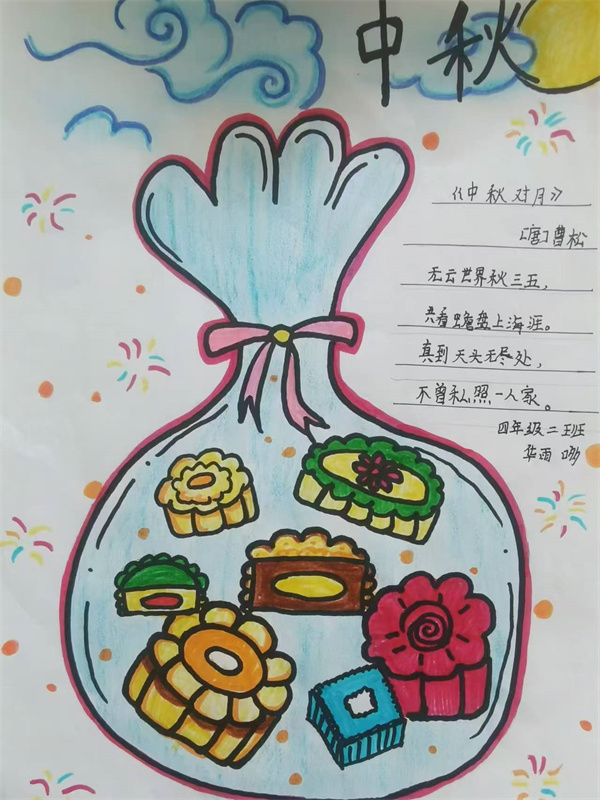 中秋
《中秋对月》
[唐]曹松
无云世界秋三五，
共看蟾盘上海涯。
直到天头无尽处，
不曾私照一人家。
四年级二班
华雨